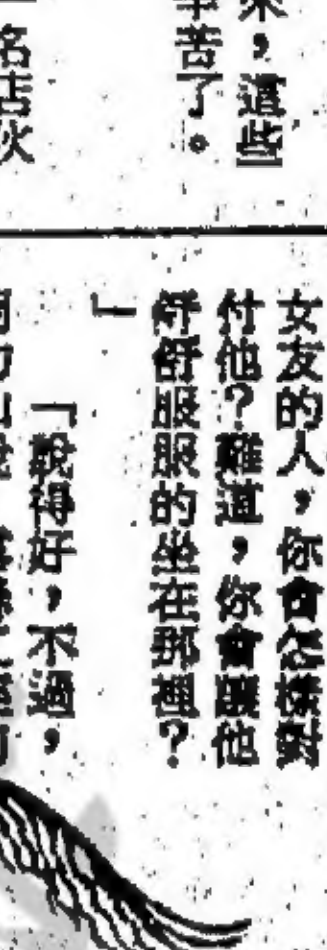 來，這些
苦了。
名店伙
女友的人，你會怎樣對
付他？難道，你會讓他
舒舒服服的坐在那裡？
」
「說得好，不過，